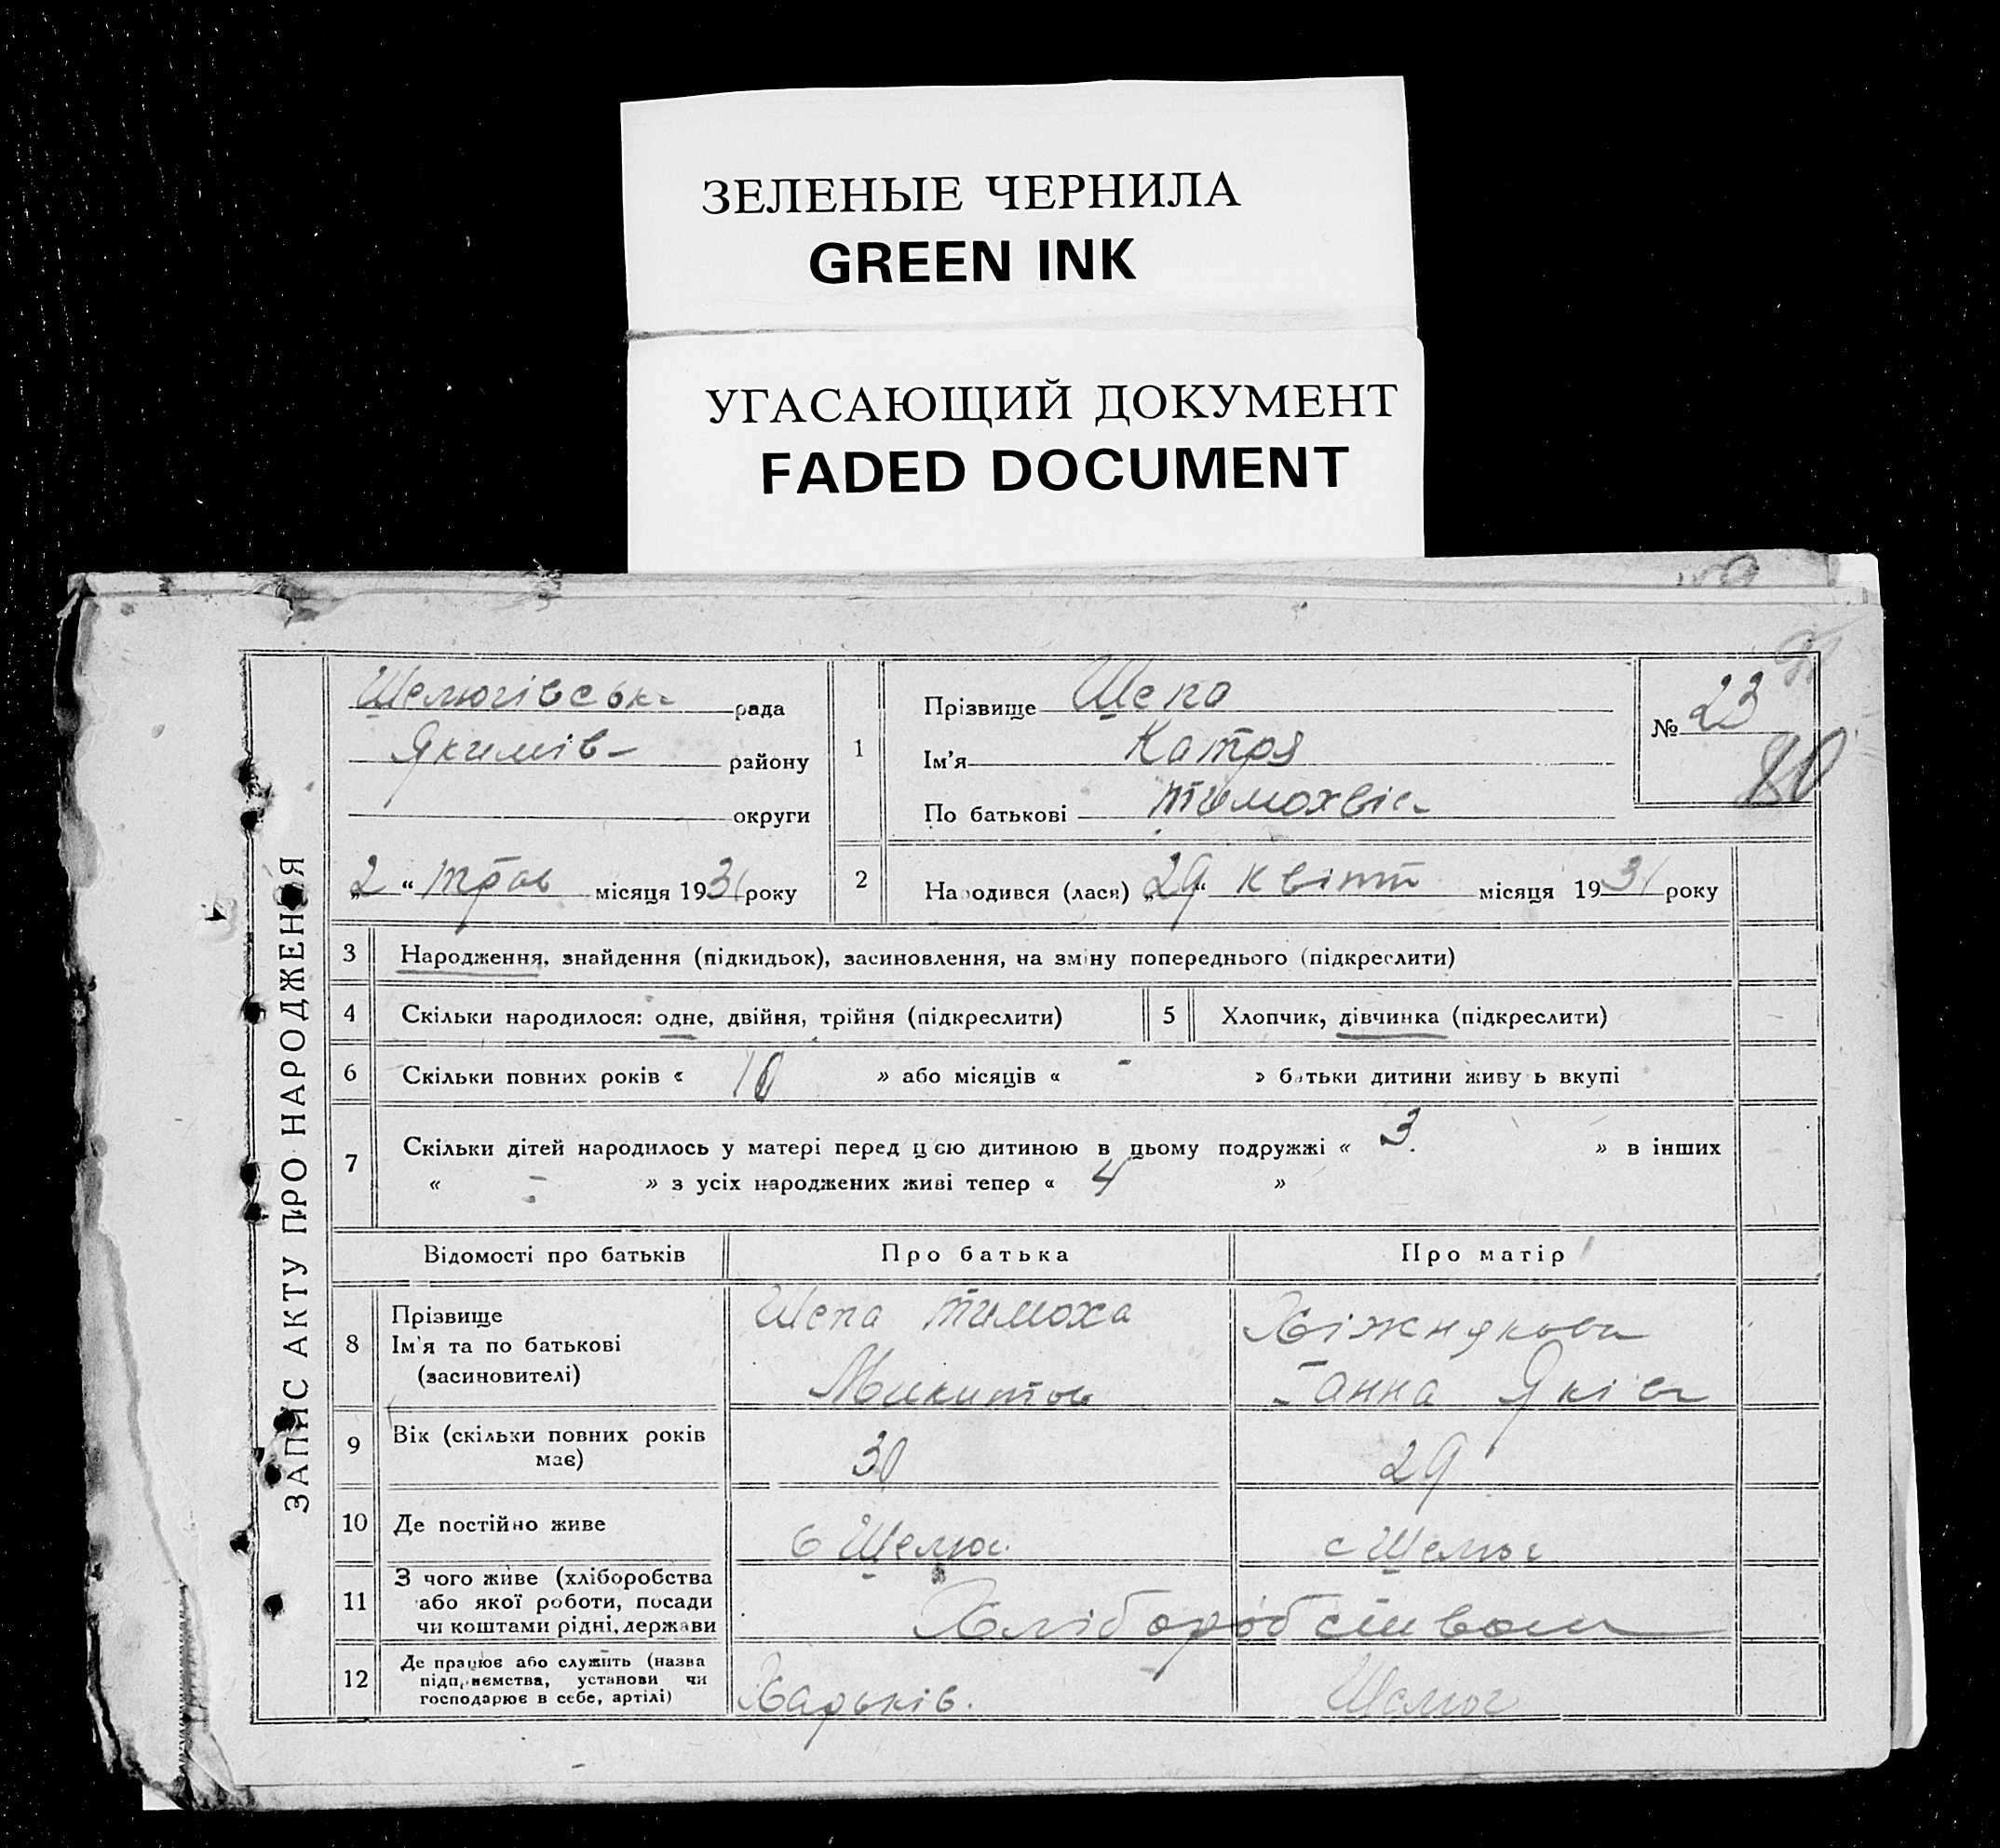 ЗЕЛЕНЫЕ ЧЕРНИЛА
GREEN INK
УГАСАЮЩИЙ ДОКУМЕНТ
FADED DOCUMENT
ЗАПИС АКТУ ПРО НАРОДЖЕННЯ
Щелюгівська рада
Якимів- району
округи
„2“ трав місяця 1931 року
1
Прізвище Щепа
Ім'я Катря
По батькові Тимохвіє
№ 23
80
2 Народився (лася) „29“ квітт місяця 1931 року
3 Народження, знайдення (підкидьок), засиновлення, на зміну попереднього (підкреслити)
4 Скільки народилося: одне, двійня, трійня (підкреслити) 5 Хлопчик, дівчинка (підкреслити)
6 Скільки повних років « 10 » або місяців « - » батьки дитини живуть вкупі
7 Скільки дітей народилось у матері перед цією дитиною в цьому подружжі « 3 » в інших
« - » з усіх народжених живі тепер « 4 »
Відомості про батьків Про батька Про матір
8 Прізвище
Ім'я та по батькові
(засиновителі)
Щепа Тимоха
Микитов
Хіжнякова
Ганна Яківи
9 Вік (скільки повних років має) 30 29
10 Де постійно живе с Щелюг. с Щелюг
11 З чого живе (хліборобства
або якої роботи, посади
чи коштами рідні, держави
Хліборобством
12 Де працює або служить (назва
підприємства, установи чи
господарює в себе, артілі)
Харьків. Щелюг